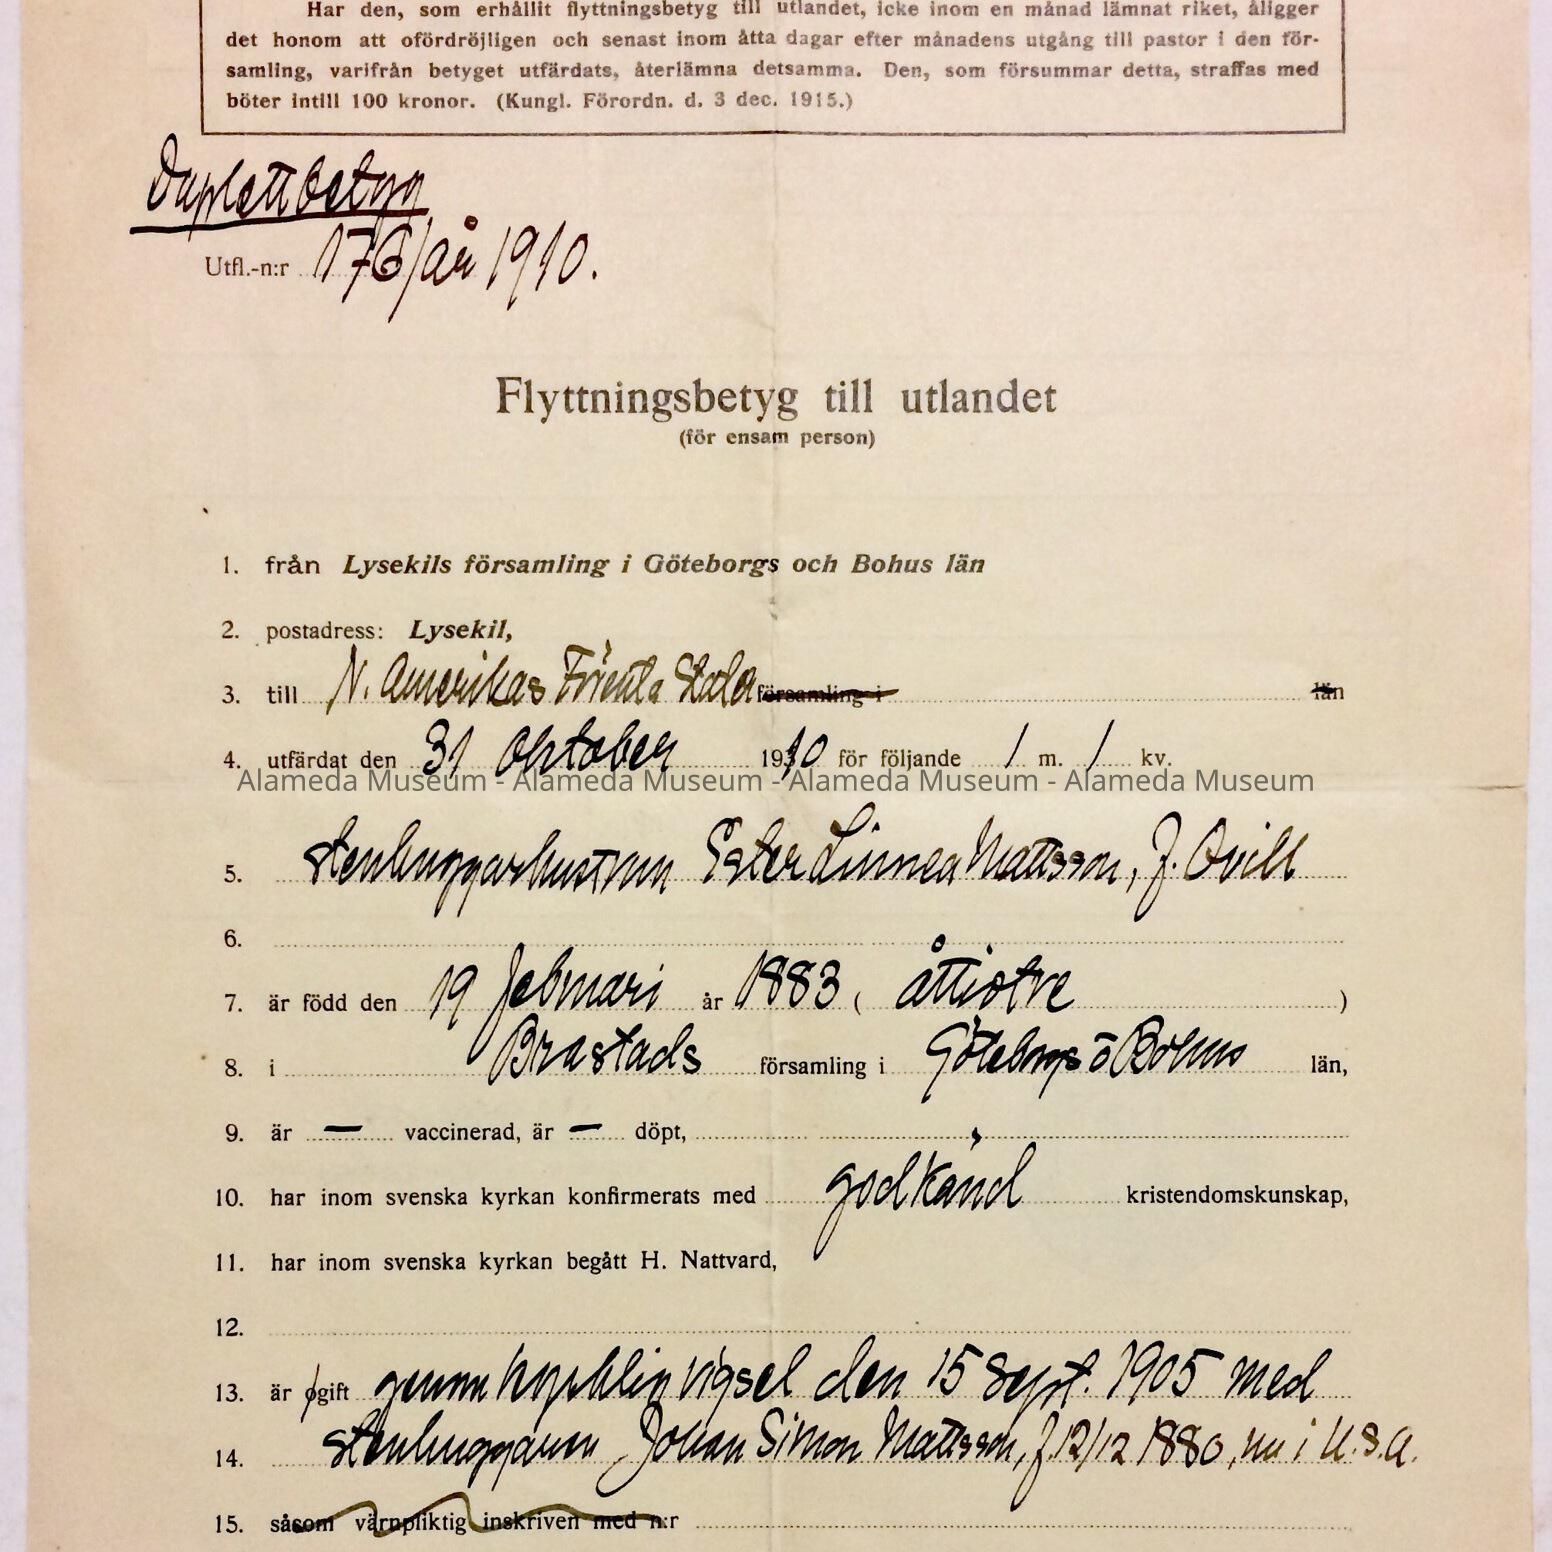 Har den, som erhållit flyttningsbetyg till utlandet, icke inom en månad lämnat riket, åligger
det honom att ofördröjligen och senast inom åtta dagar efter månadens utgång till pastor i den för-
samling, varifrån betyget utfärdats, återlämna detsamma. Den, som försummar detta, straffas med
böter intill 100 kronor. (Kungl. Förordn. d. 3 dec. 1915.)
Duplettbetyg
Utfl.-n:r 176/år 1910.
Flyttningsbetyg till utlandet
(för ensam person)
1. från Lysekils församling i Göteborgs och Bohus län
2. postadress: Lysekil,
3. till N. Amerikas Förenta Stater församling i län
4. utfärdat den 31 oktober 1910 för följande 1 m. 1 kv.
Alameda Museum - Alameda Museum - Alameda Museum - Alameda Museum
5. stenhuggarhustrun Ester Linnea Mattsson, f. Qvill
6.
7. är född den 19 februari år 1883 ( åttiotre )
8. i Brastads församling i Göteborgs o Bohus län,
9. är — vaccinerad, är — döpt,
10. har inom svenska kyrkan konfirmerats med godkänd kristendomskunskap,
11. har inom svenska kyrkan begått H. Nattvard,
12.
13. är ogift genom kyrklig vigsel den 15 Sept. 1905 med
14. stenhuggaren Johan Simon Mattsson, f. 12/12 1880, nu i U.S.A.
15. såsom värnpliktig inskriven med n:r